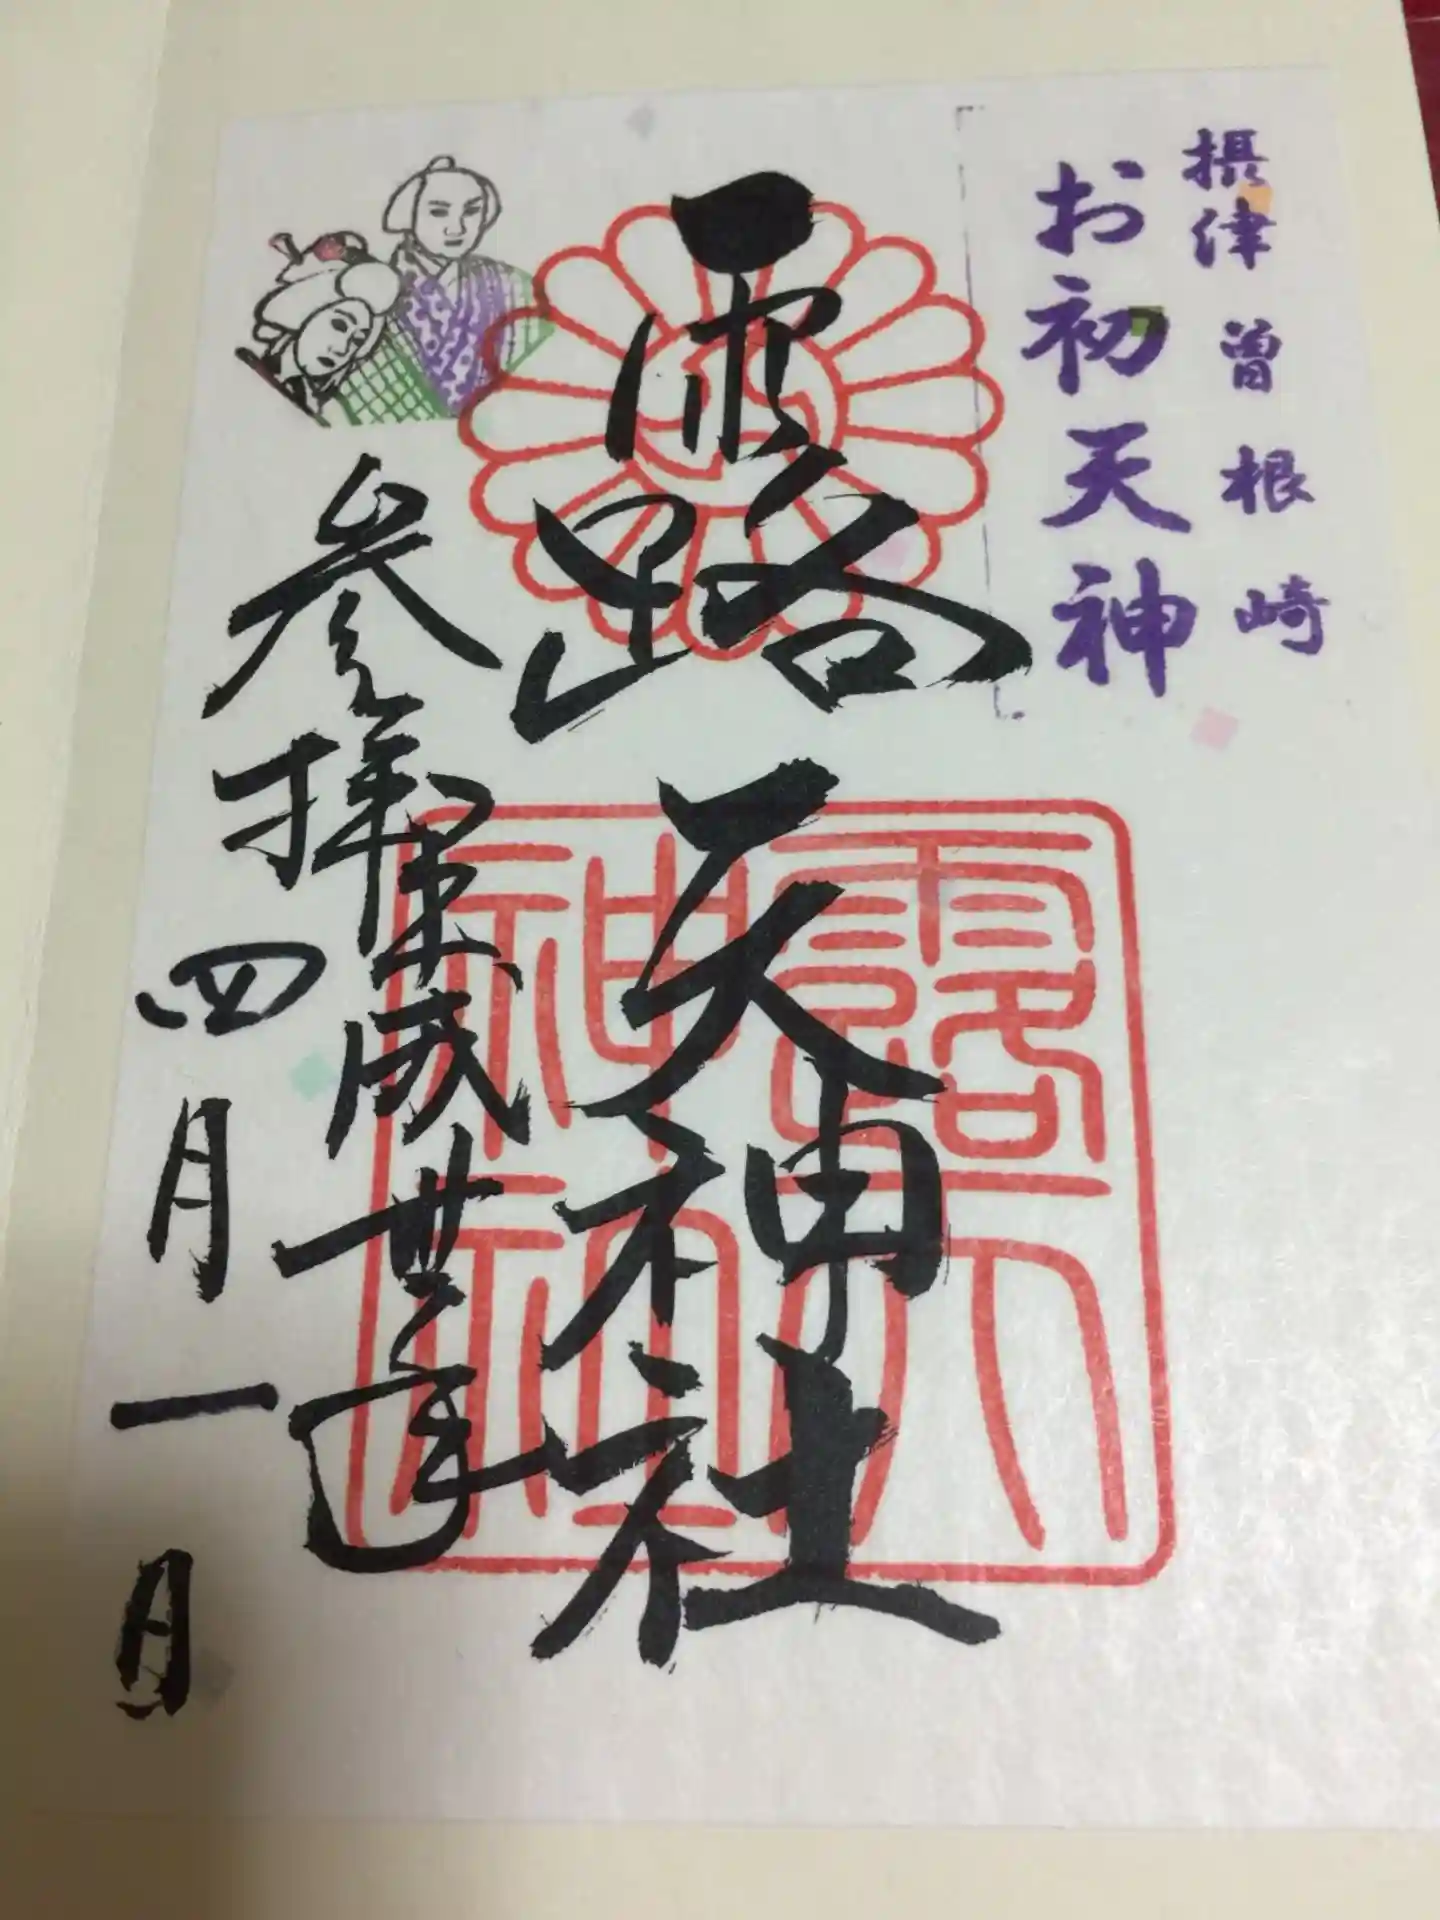 摂津 曽根崎
お初天神
露天神社
参拝平成丗一年
四月一日
露天
神社